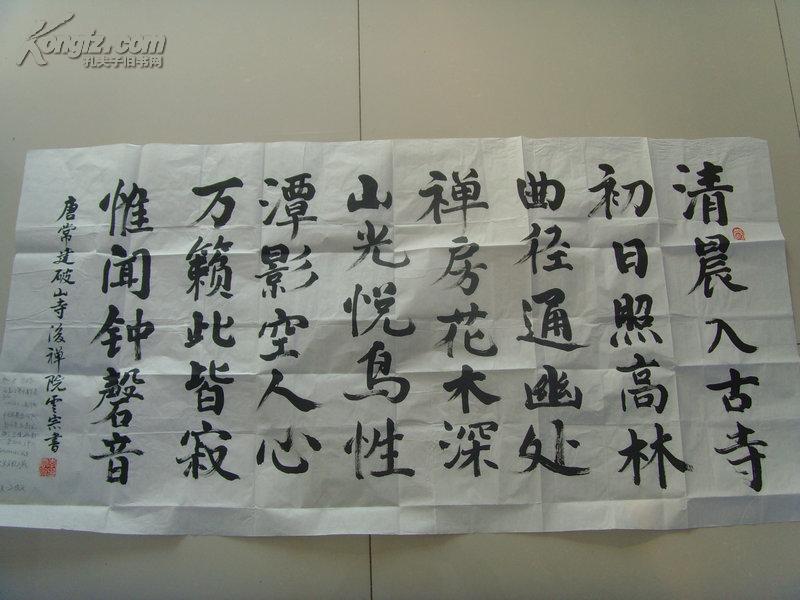 清晨入古寺
初日照高林
曲径通幽处
禅房花木深
山光悦鸟性
潭影空人心
万籁此皆寂
惟闻钟磬音
唐常建破山寺后禅院云宗书
Kongfz.com
孔夫子旧书网